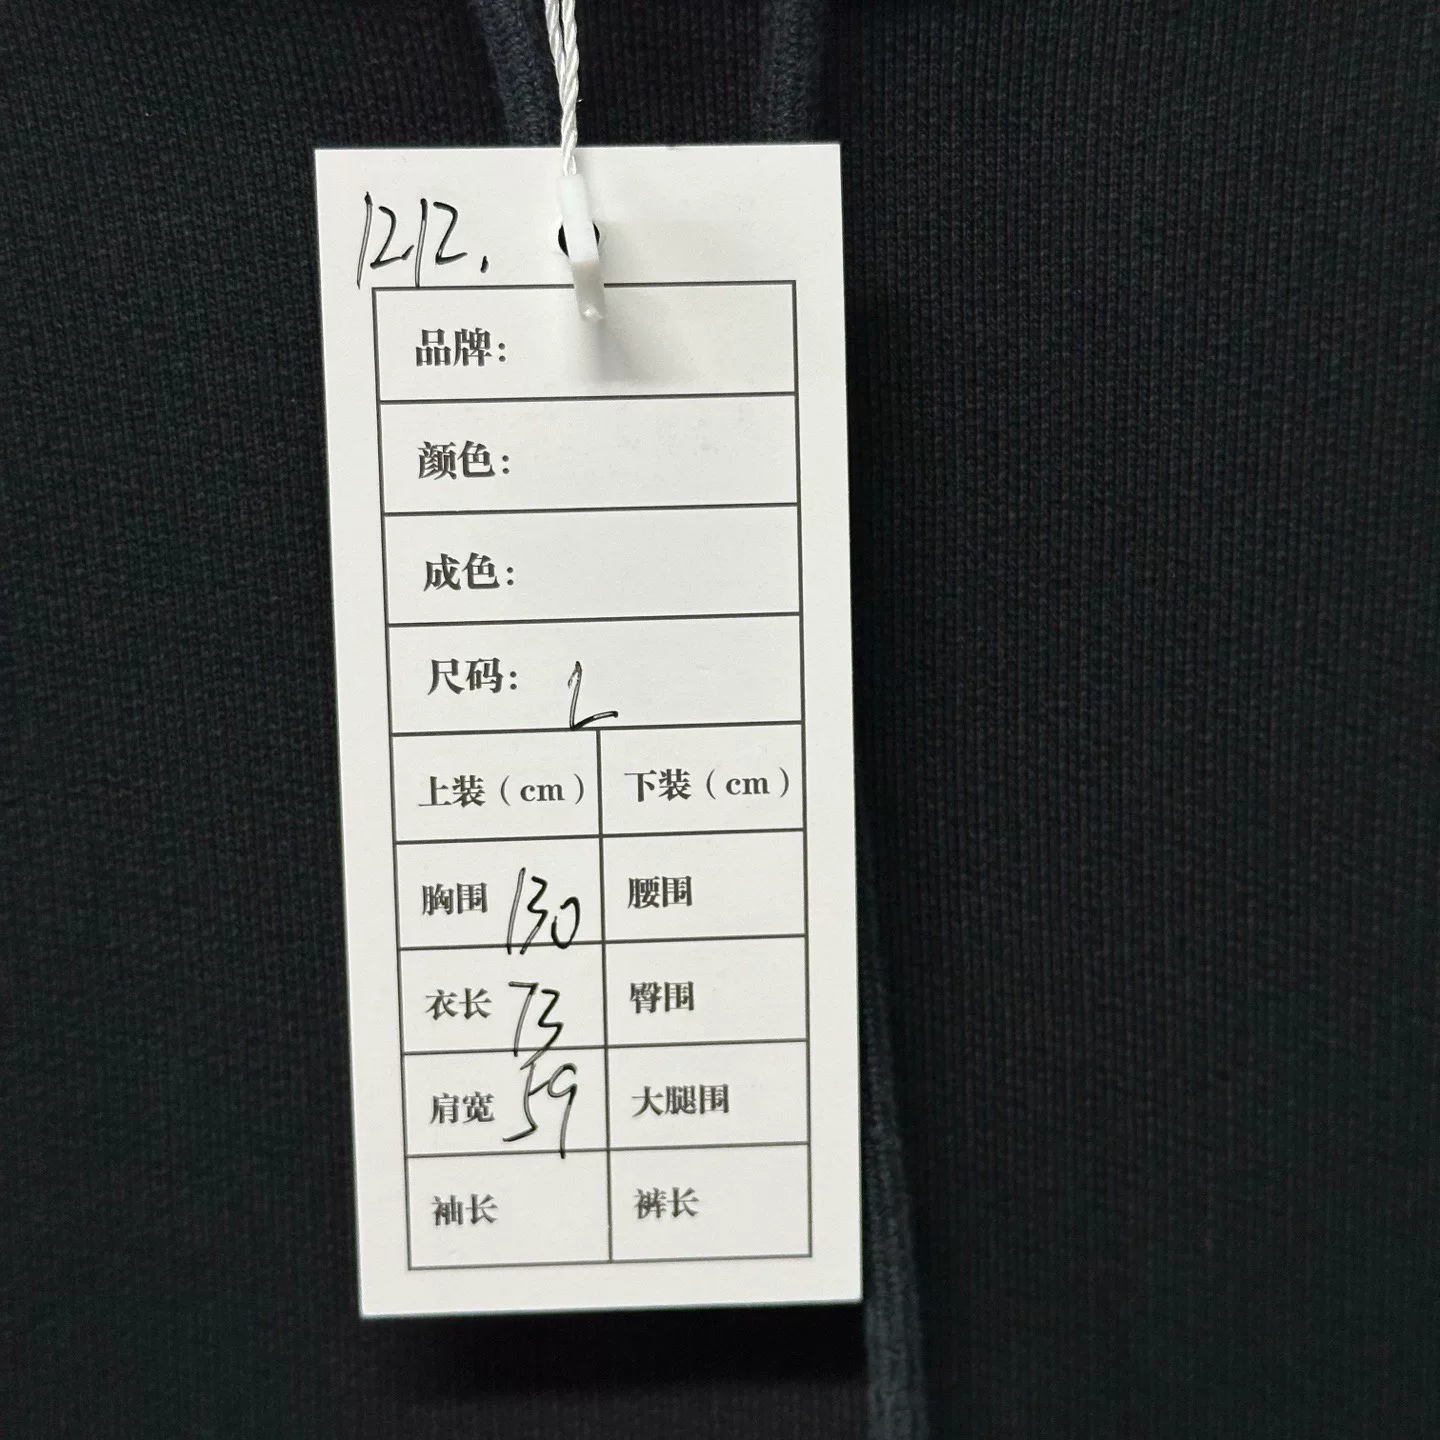 12.12.
品牌：
颜色：
成色：
尺码： L
上装（cm） 下装（cm）
胸围 130 腰围
衣长 73 臀围
肩宽 59 大腿围
袖长 裤长